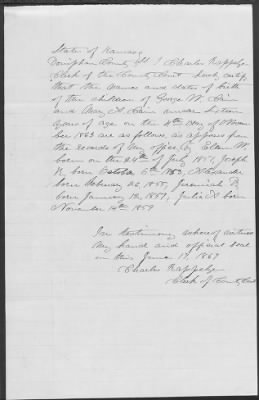 State of Kansas
Doniphan County SS I Charles Rappelye
Clerk of the County Court hereby certify
that the names and dates of birth
of the children of George W.
and Mary A. under sixteen
years of age on the 4th day of Novem
ber 1863 are as follows, as appears from
the records of my office, Elam W.
born on the 24th of July 1851, Joseph
N. born October 5th 1853, Alexander
born February 22, 1855, Jeremiah B
born January 12, 1857, Julia A born
November 14th 1859
In testimony whereof witness
my hand and official seal
on this June 17, 1867
Charles Rappelye
Clerk of County Court